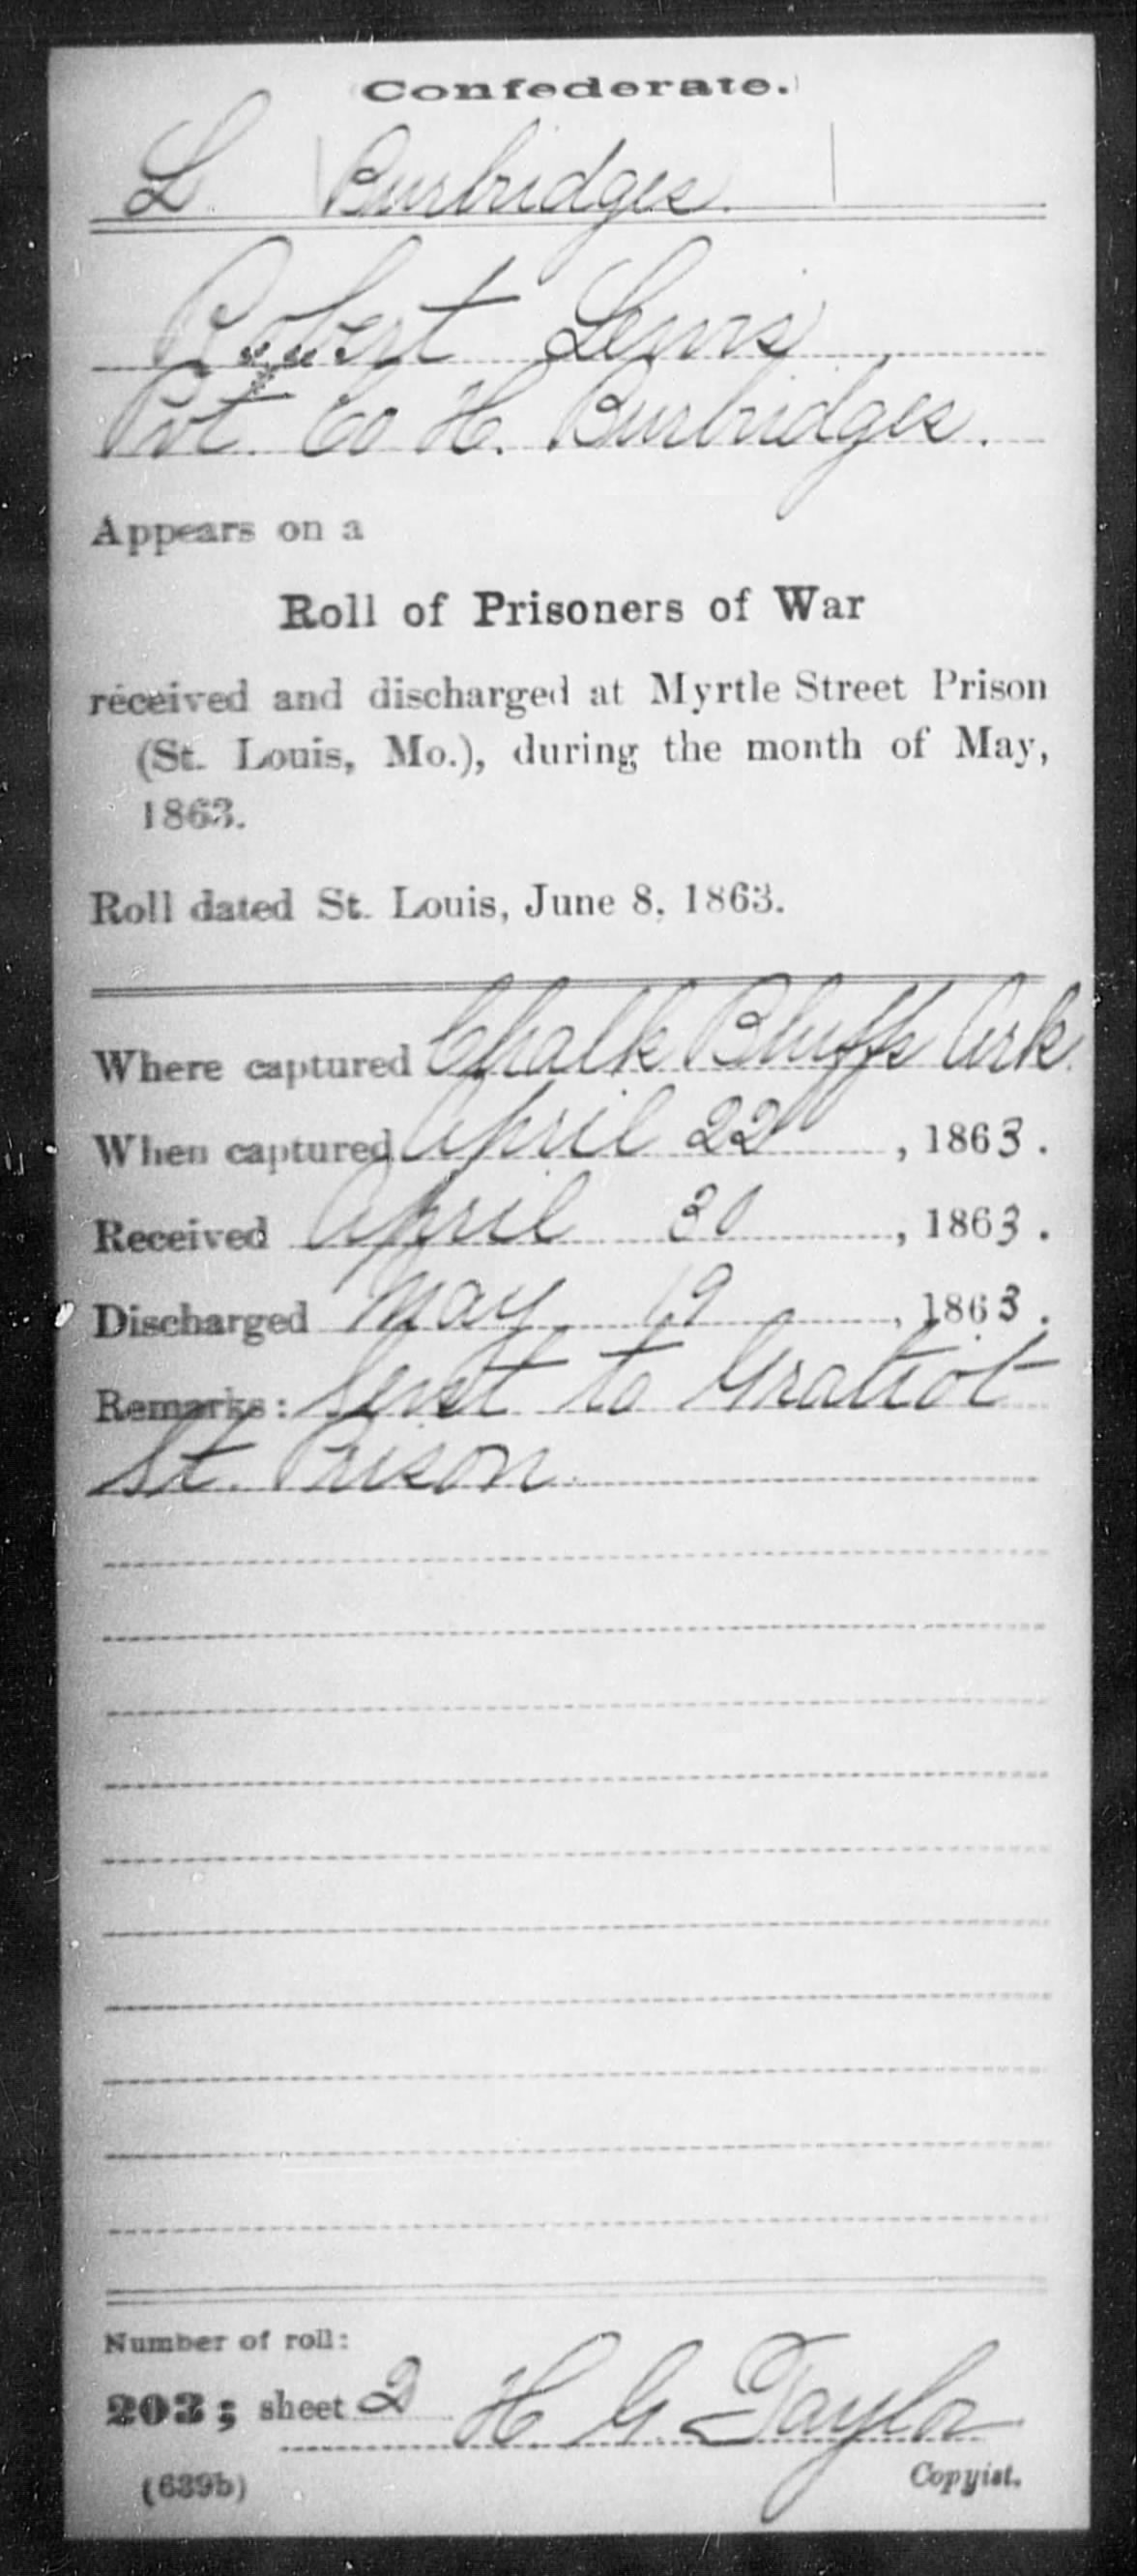 Confederate.
L Burbridges.
Robert Lewis
Pvt. Co H. Burbridges.
Appears on a
Roll of Prisoners of War
received and discharged at Myrtle Street Prison
(St. Louis, Mo.), during the month of May,
1863.
Roll dated St. Louis, June 8, 1863.
Where captured Chalk Bluffs Ark.
When captured April 22, 1863.
Received April 30, 1863.
Discharged May 19, 1863.
Remarks: Sent to Gratiot
St. Prison.
Number of roll:
203; sheet 2 H G Taylor
Copyist.
(639b)